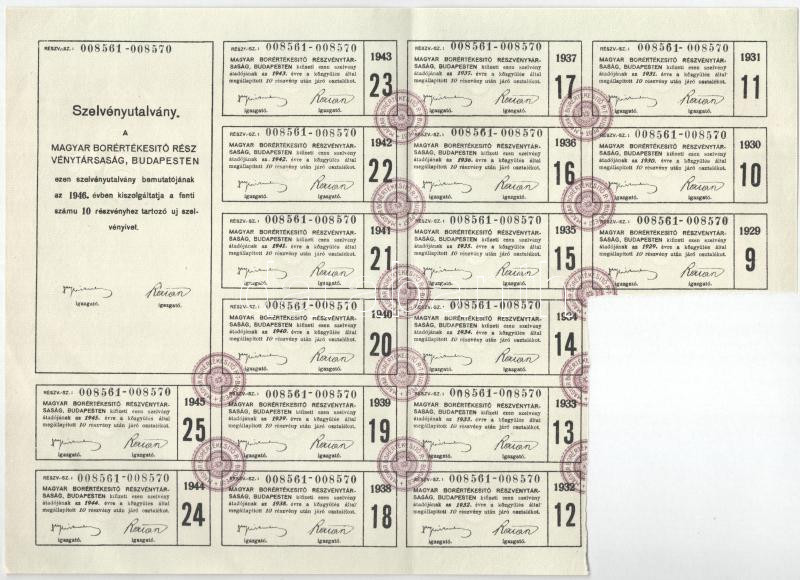 RÉSZV.-SZ.: 008561-008570
Szelvényutalvány.
A
MAGYAR BORÉRTÉKESITŐ RÉSZ
VÉNYTÁRSASÁG, BUDAPESTEN
ezen szelvényutalvány bemutatójának
az 1946. évben kiszolgáltatja a fenti
számu 10 részvényhez tartozó uj szel-
vényivet.
igazgató. igazgató.
RÉSZV.-SZ.: 008561-008570 1945
MAGYAR BORÉRTÉKESITŐ RÉSZVÉNYTÁR-
SASÁG, BUDAPESTEN kifizeti ezen szelvény
átadójának az 1945. évre a közgyülés által
megállapitott 10 részvény után járó osztalékot.
25
igazgató. igazgató.
RÉSZV.-SZ.: 008561-008570 1944
MAGYAR BORÉRTÉKESITŐ RÉSZVÉNYTÁR-
SASÁG, BUDAPESTEN kifizeti ezen szelvény
átadójának az 1944. évre a közgyülés által
megállapitott 10 részvény után járó osztalékot.
24
igazgató. igazgató.
RÉSZV.-SZ.: 008561-008570 1943
MAGYAR BORÉRTÉKESITŐ RÉSZVÉNYTÁR-
SASÁG, BUDAPESTEN kifizeti ezen szelvény
átadójának az 1943. évre a közgyülés által
megállapitott 10 részvény után járó osztalékot.
23
igazgató. igazgató.
RÉSZV.-SZ.: 008561-008570 1942
MAGYAR BORÉRTÉKESITŐ RÉSZVÉNYTÁR-
SASÁG, BUDAPESTEN kifizeti ezen szelvény
átadójának az 1942. évre a közgyülés által
megállapitott 10 részvény után járó osztalékot.
22
igazgató. igazgató.
RÉSZV.-SZ.: 008561-008570 1941
MAGYAR BORÉRTÉKESITŐ RÉSZVÉNYTÁR-
SASÁG, BUDAPESTEN kifizeti ezen szelvény
átadójának az 1941. évre a közgyülés által
megállapitott 10 részvény után járó osztalékot.
21
igazgató. igazgató.
RÉSZV.-SZ.: 008561-008570 1940
MAGYAR BORÉRTÉKESITŐ RÉSZVÉNYTÁR-
SASÁG, BUDAPESTEN kifizeti ezen szelvény
átadójának az 1940. évre a közgyülés által
megállapitott 10 részvény után járó osztalékot.
20
igazgató. igazgató.
RÉSZV.-SZ.: 008561-008570 1939
MAGYAR BORÉRTÉKESITŐ RÉSZVÉNYTÁR-
SASÁG, BUDAPESTEN kifizeti ezen szelvény
átadójának az 1939. évre a közgyülés által
megállapitott 10 részvény után járó osztalékot.
19
igazgató. igazgató.
RÉSZV.-SZ.: 008561-008570 1938
MAGYAR BORÉRTÉKESITŐ RÉSZVÉNYTÁR-
SASÁG, BUDAPESTEN kifizeti ezen szelvény
átadójának az 1938. évre a közgyülés által
megállapitott 10 részvény után járó osztalékot.
18
igazgató. igazgató.
RÉSZV.-SZ.: 008561-008570 1937
MAGYAR BORÉRTÉKESITŐ RÉSZVÉNYTÁR-
SASÁG, BUDAPESTEN kifizeti ezen szelvény
átadójának az 1937. évre a közgyülés által
megállapitott 10 részvény után járó osztalékot.
17
igazgató. igazgató.
RÉSZV.-SZ.: 008561-008570 1936
MAGYAR BORÉRTÉKESITŐ RÉSZVÉNYTÁR-
SASÁG, BUDAPESTEN kifizeti ezen szelvény
átadójának az 1936. évre a közgyülés által
megállapitott 10 részvény után járó osztalékot.
16
igazgató. igazgató.
RÉSZV.-SZ.: 008561-008570 1935
MAGYAR BORÉRTÉKESITŐ RÉSZVÉNYTÁR-
SASÁG, BUDAPESTEN kifizeti ezen szelvény
átadójának az 1935. évre a közgyülés által
megállapitott 10 részvény után járó osztalékot.
15
igazgató. igazgató.
RÉSZV.-SZ.: 008561-008570 1934
MAGYAR BORÉRTÉKESITŐ RÉSZVÉNYTÁR-
SASÁG, BUDAPESTEN kifizeti ezen szelvény
átadójának az 1934. évre a közgyülés által
megállapitott 10 részvény után járó osztalékot.
14
igazgató. igazgató.
RÉSZV.-SZ.: 008561-008570 1933
MAGYAR BORÉRTÉKESITŐ RÉSZVÉNYTÁR-
SASÁG, BUDAPESTEN kifizeti ezen szelvény
átadójának az 1933. évre a közgyülés által
megállapitott 10 részvény után járó osztalékot.
13
igazgató. igazgató.
RÉSZV.-SZ.: 008561-008570 1932
MAGYAR BORÉRTÉKESITŐ RÉSZVÉNYTÁR-
SASÁG, BUDAPESTEN kifizeti ezen szelvény
átadójának az 1932. évre a közgyülés által
megállapitott 10 részvény után járó osztalékot.
12
igazgató. igazgató.
RÉSZV.-SZ.: 008561-008570 1931
MAGYAR BORÉRTÉKESITŐ RÉSZVÉNYTÁR-
SASÁG, BUDAPESTEN kifizeti ezen szelvény
átadójának az 1931. évre a közgyülés által
megállapitott 10 részvény után járó osztalékot.
11
igazgató. igazgató.
RÉSZV.-SZ.: 008561-008570 1930
MAGYAR BORÉRTÉKESITŐ RÉSZVÉNYTÁR-
SASÁG, BUDAPESTEN kifizeti ezen szelvény
átadójának az 1930. évre a közgyülés által
megállapitott 10 részvény után járó osztalékot.
10
igazgató. igazgató.
RÉSZV.-SZ.: 008561-008570 1929
MAGYAR BORÉRTÉKESITŐ RÉSZVÉNYTÁR-
SASÁG, BUDAPESTEN kifizeti ezen szelvény
átadójának az 1929. évre a közgyülés által
megállapitott 10 részvény után járó osztalékot.
9
igazgató. igazgató.